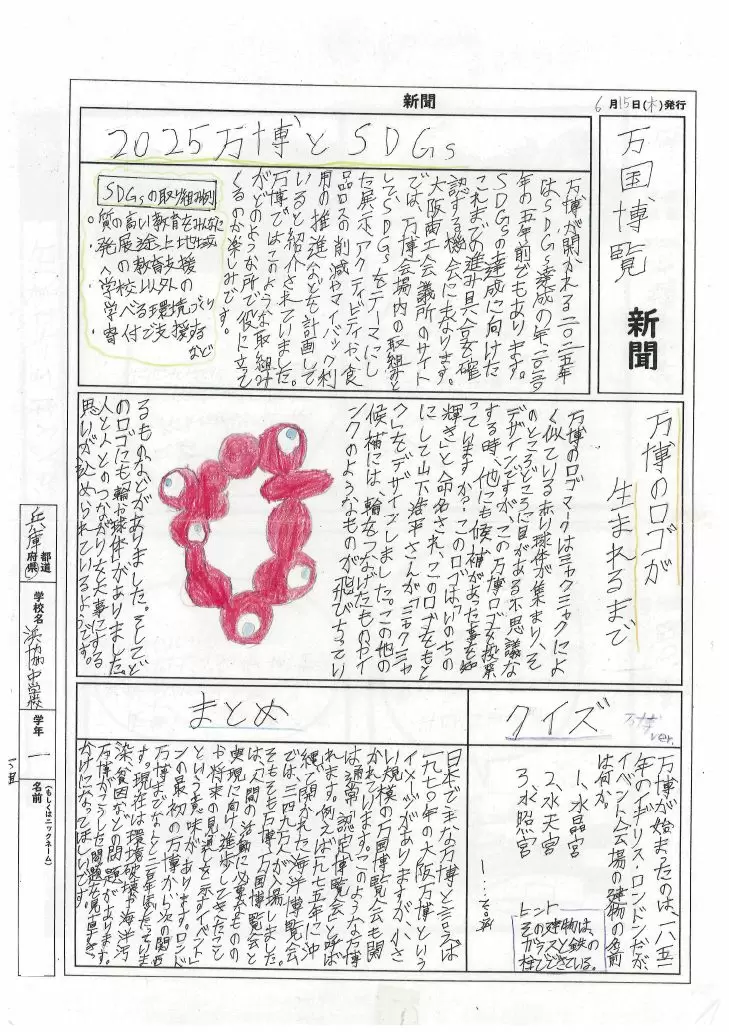 新聞
6月15日(木)発行
万国博覧
新聞
2025万博とSDGs
万博が開かれる二〇二五年
はSDGs達成の年二〇三〇
年の五年前でもあります。
SDGsの達成に向けた
これまでの進み具合を確
認する機会になります。
大阪商工会議所のサイト
では、万博会場内の取組みと
して、SDGsをテーマにし
た展示、アクティビティや、食
品ロスの削減やマイバック利
用の推進などを計画して
いると紹介されていました。
万博ではこのような取組み
がどのような所で役に立って
くるのか楽しみです。
SDGsの取り組み例
・質の高い教育をみんなに
・発展途上地域
への教育支援
・学校以外の
学べる環境づくり
・寄付で支援する
など
万博のロゴが
生まれるまで
万博のロゴマークはミャクミャクによ
く似ている赤い球体が集まり、そ
のところどころに目がある不思議な
デザインですが、この万博ロゴを投票
する時、他にも候補があった事を知
っていますか?このロゴは「いのちの
輝き」と命名され、このロゴをもと
にして山下浩平さんが「ミャクミャ
ク」をデザインしました。この他の
候補には、輪をつなげたものやイ
ンクのようなものが飛びちってい
るものなどがありました。そしてど
のロゴにも輪や球体がありました。
人と人とのつながりを大事にする
思いが込められているようです。
クイズ
万博ver.
万博が始まったのは、一八五一
年のイギリス・ロンドンだが、
イベント会場の建物の名前
は何か。
1、水晶宮
2、水天宮
3、水照宮
ヒント
建物は、
その
ガラスと鉄の
柱でできている。
まとめ
日本で主な万博と言えば
一九七〇年の大阪万博という
イメージがありますが、小さ
い規模の万国博覧会も開
かれています。このような万博
は通常「認定博覧会」と呼ば
れます。例えば一九七五年に沖
縄で開かれた海洋博覧会
では、三四九万人が来場しました。
そもそも万博(万国博覧会)と
は、「人間の活動に必要なものの
実現に向け、進歩してきたこと
や将来の見通しを示すイベント」
という意味があります。ロンド
ンの最初の万博から次の関西
万博までなんと二百年弱たっていま
す。現在は環境破壊や海洋汚
染、貧困などの問題があります。
万博がこうした問題を見直すき
かけになってほしいです。
兵庫
都道
府県
学校名
浜脇中学校
学年
一
名前
(もしくはニックネーム)